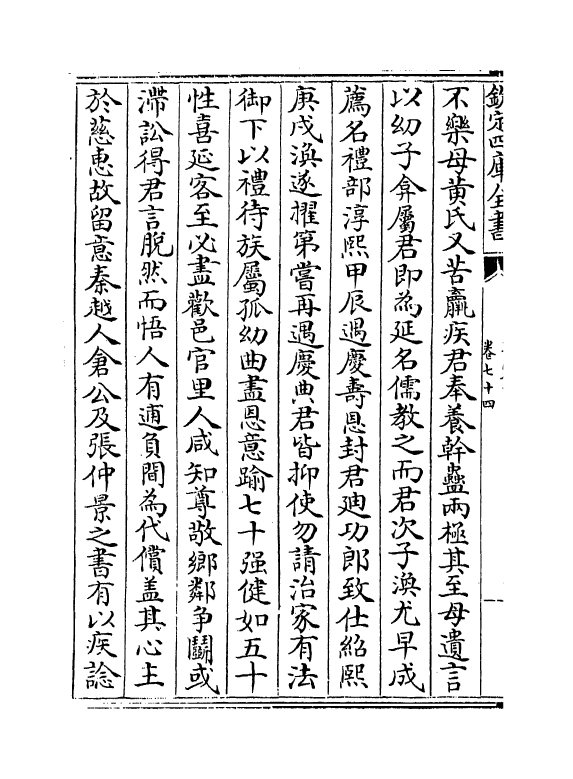 欽定四庫全書
卷七十四
不樂母黄氏又苦羸疾君奉養幹蠱兩極其至母遺言
以幼子弇屬君即為延名儒教之而君次子渙尤早成
薦名禮部淳熙甲辰遇慶壽恩封君廸功郎致仕紹熙
庚戌渙遂擢第嘗再遇慶典君皆抑使勿請治家有法
御下以禮待族屬孤幼曲盡恩意踰七十强健如五十
性喜延客至必盡歡邑官里人咸知尊敬鄉鄰争鬭或
滯訟得君言脱然而悟人有逋負間為代償盖其心主
於慈恵故留意秦越人倉公及張仲景之書有以疾諗